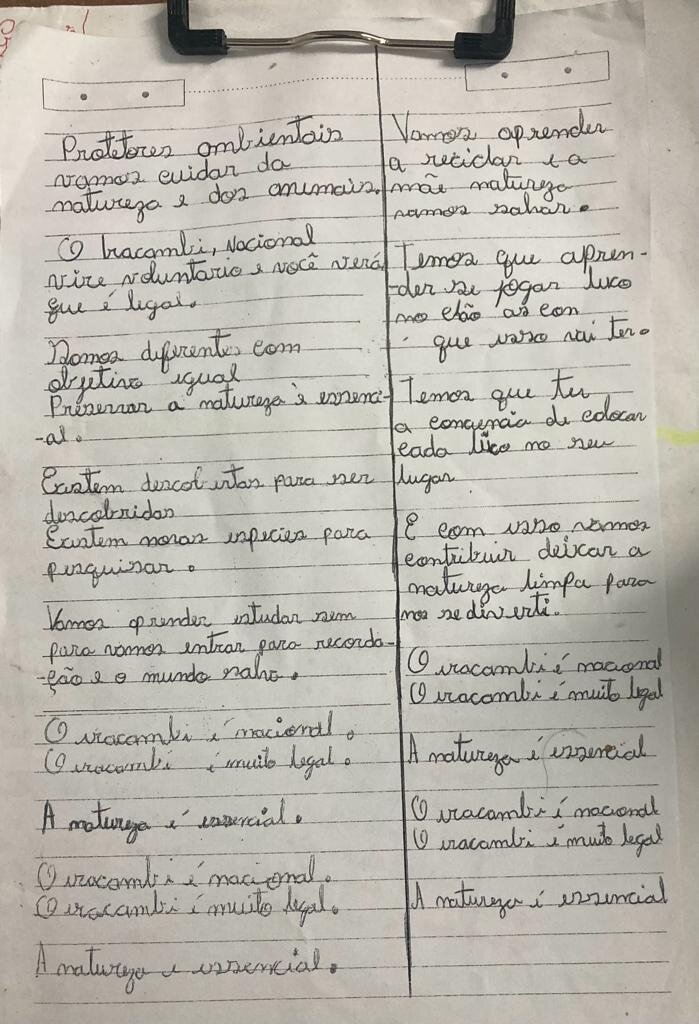 Protetores ambientais
vamos cuidar da
natureza e dos animais.
O Iracambi, Nacional
vire voluntario e você verá
que é legal.
Somos diferentes com
objetivo igual
Preservar a natureza é essenci-
-al.
Existem descobertas para ser
descobridas
Existem novas especies para
pesquisar.
Vamos aprender estudar sem
para vamos entrar para recorda-
-ção e o mundo salvo.
O iracambi é nacional.
O iracambi é muito legal.
A natureza é essencial.
O iracambi é nacional.
O iracambi é muito legal.
A natureza é essencial.
Vamos aprender
a reciclar e a
mãe natureza
vamos salvar.
Temos que apren-
-der se jogar lixo
no chão as con
que isso vai ter.
Temos que ter
a concencia de colocar
cada lixo no seu
lugar
E com isso vamos
contribuir deixar a
natureza limpa para
nos se diverti.
O iracambi é nacional
O iracambi é muito legal
A natureza é essencial
O iracambi é nacional
O iracambi é muito legal
A natureza é essencial